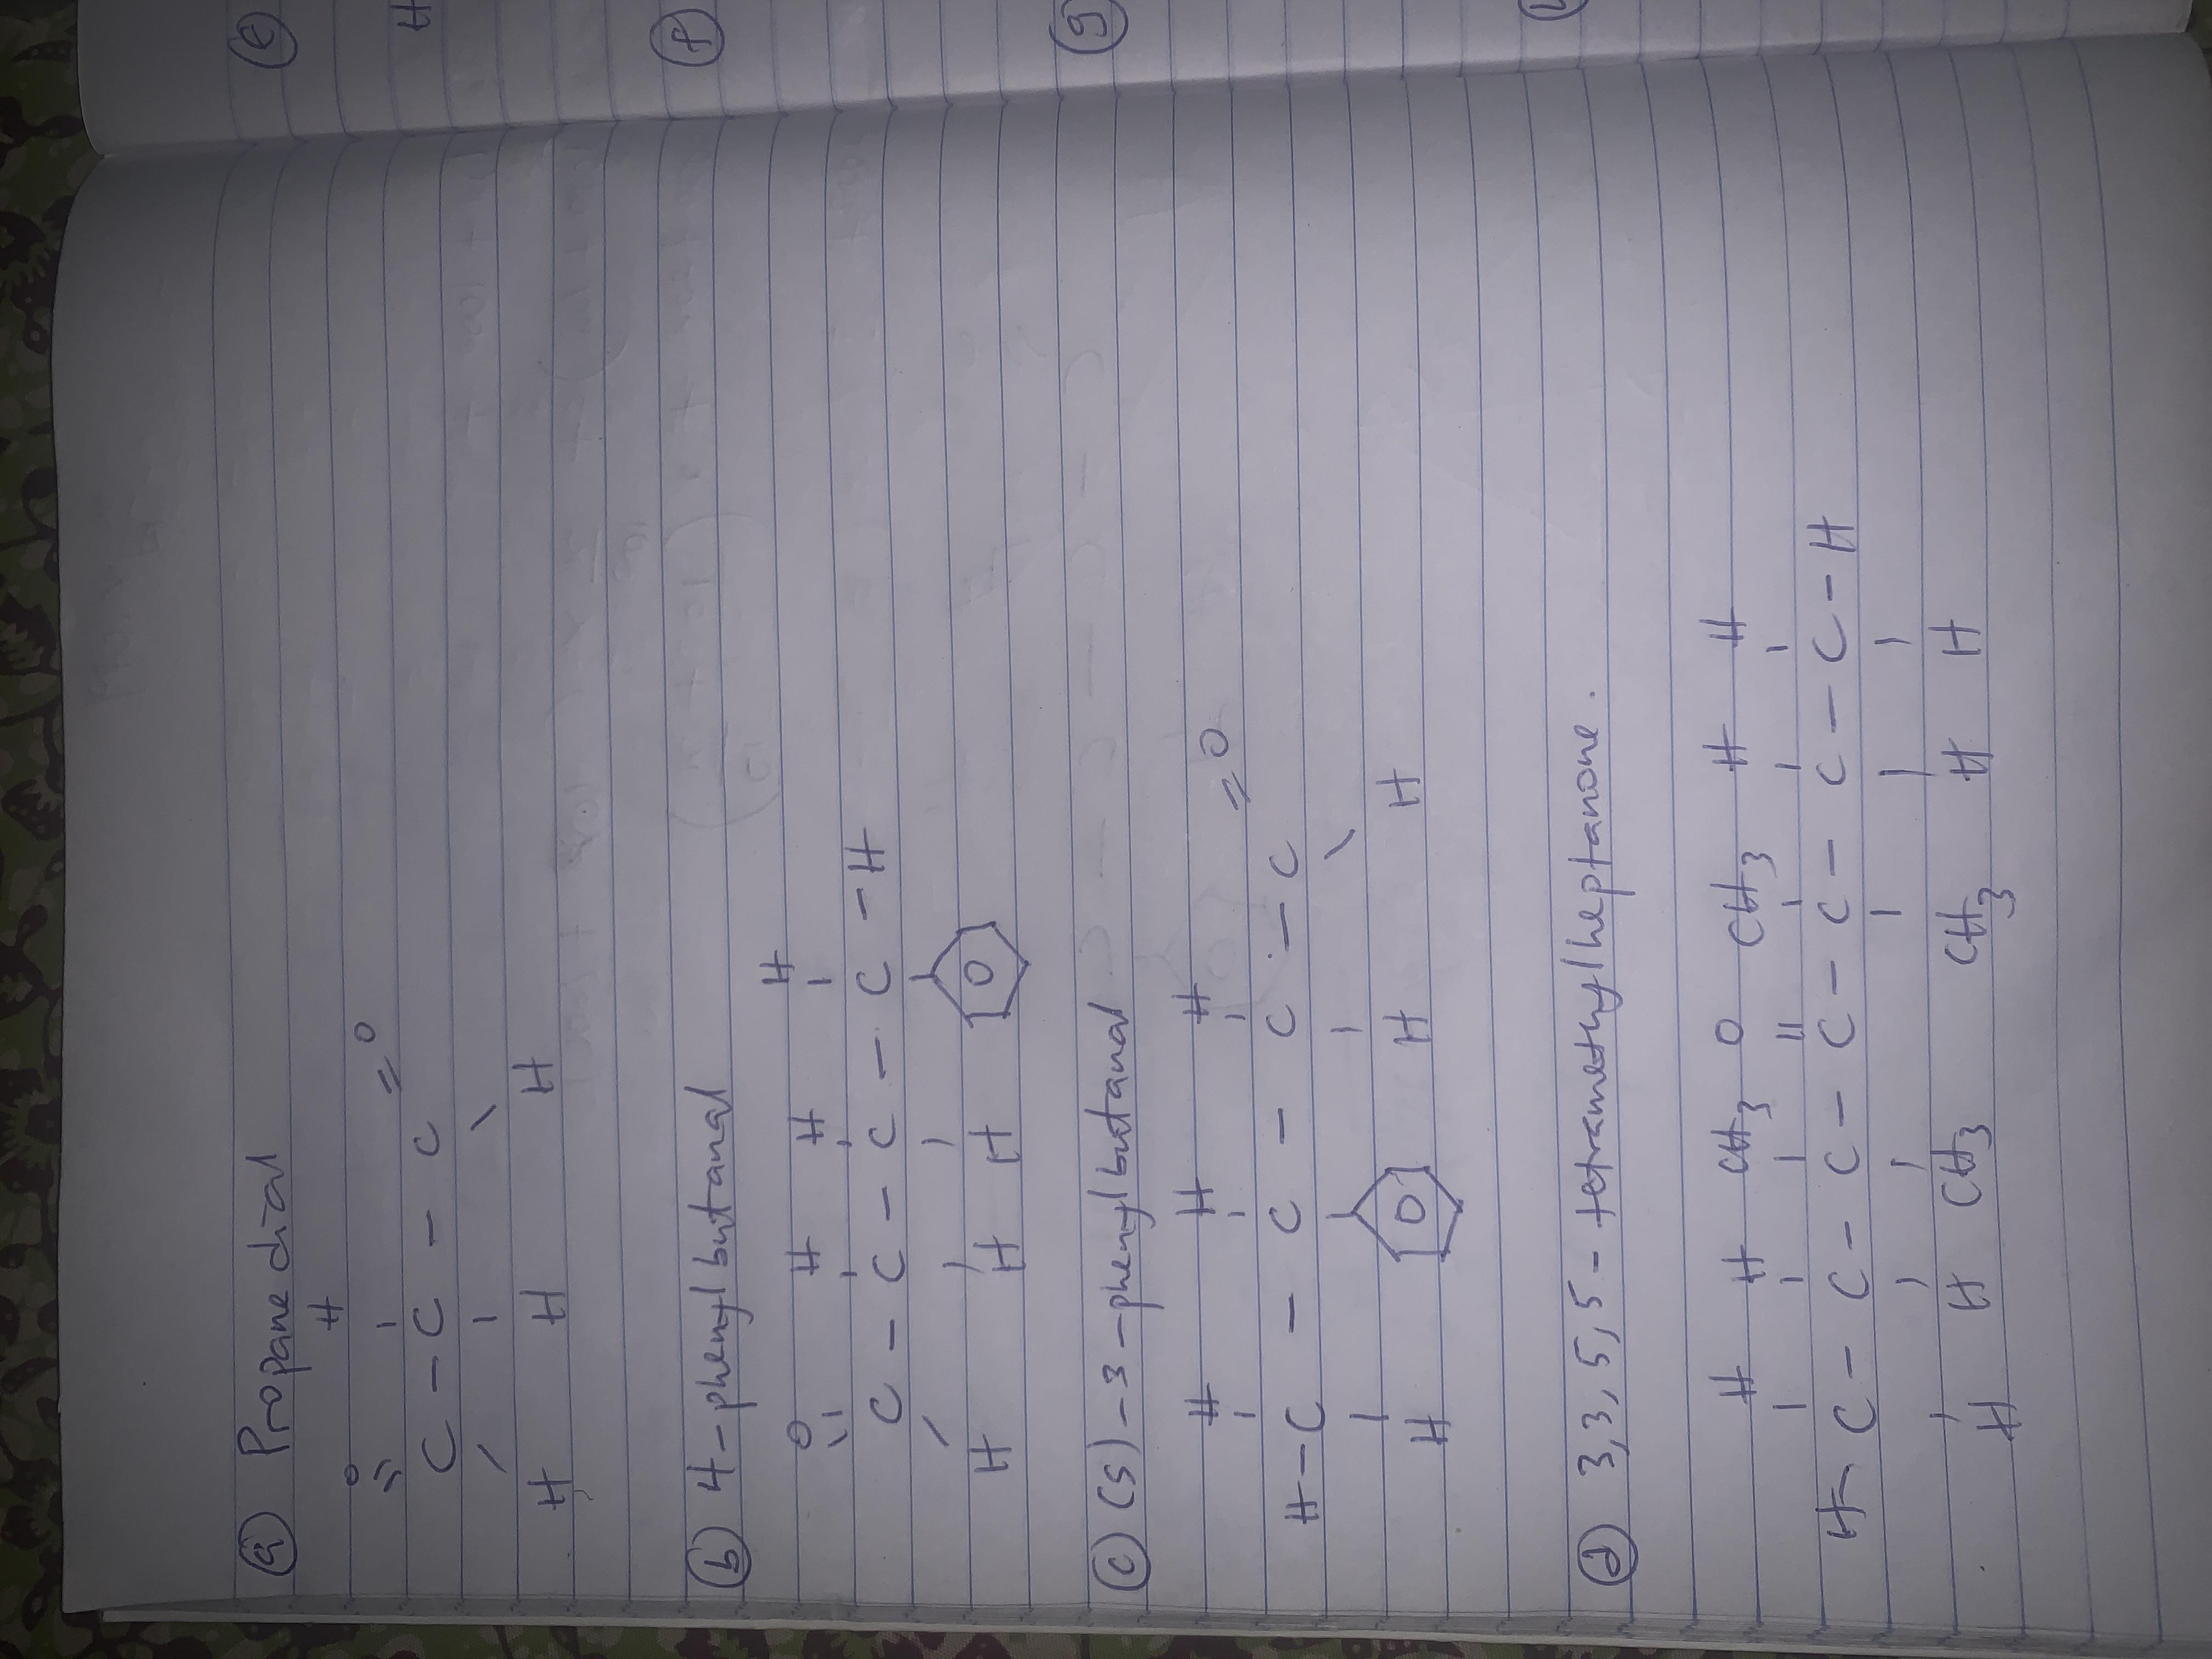 (a) Propane dial
O H O
|| | =
C - C - C
/ | \
H H H
(b) 4-phenylbutanal
O H H H
\\ | | |
C - C - C - C - H
/ | | |
H H H
(c) (S)-3-phenylbutanal
H H H O
| | | =
H-C - C - C - C
| | | \
H H H
(d) 3,3,5,5-tetramethylheptanone.
H H CH3 O CH3 H H
| | | || | | |
H-C - C - C - C - C - C - C - H
| | | | | |
H H CH3 CH3 H H
(e)
H
(f)
(g)